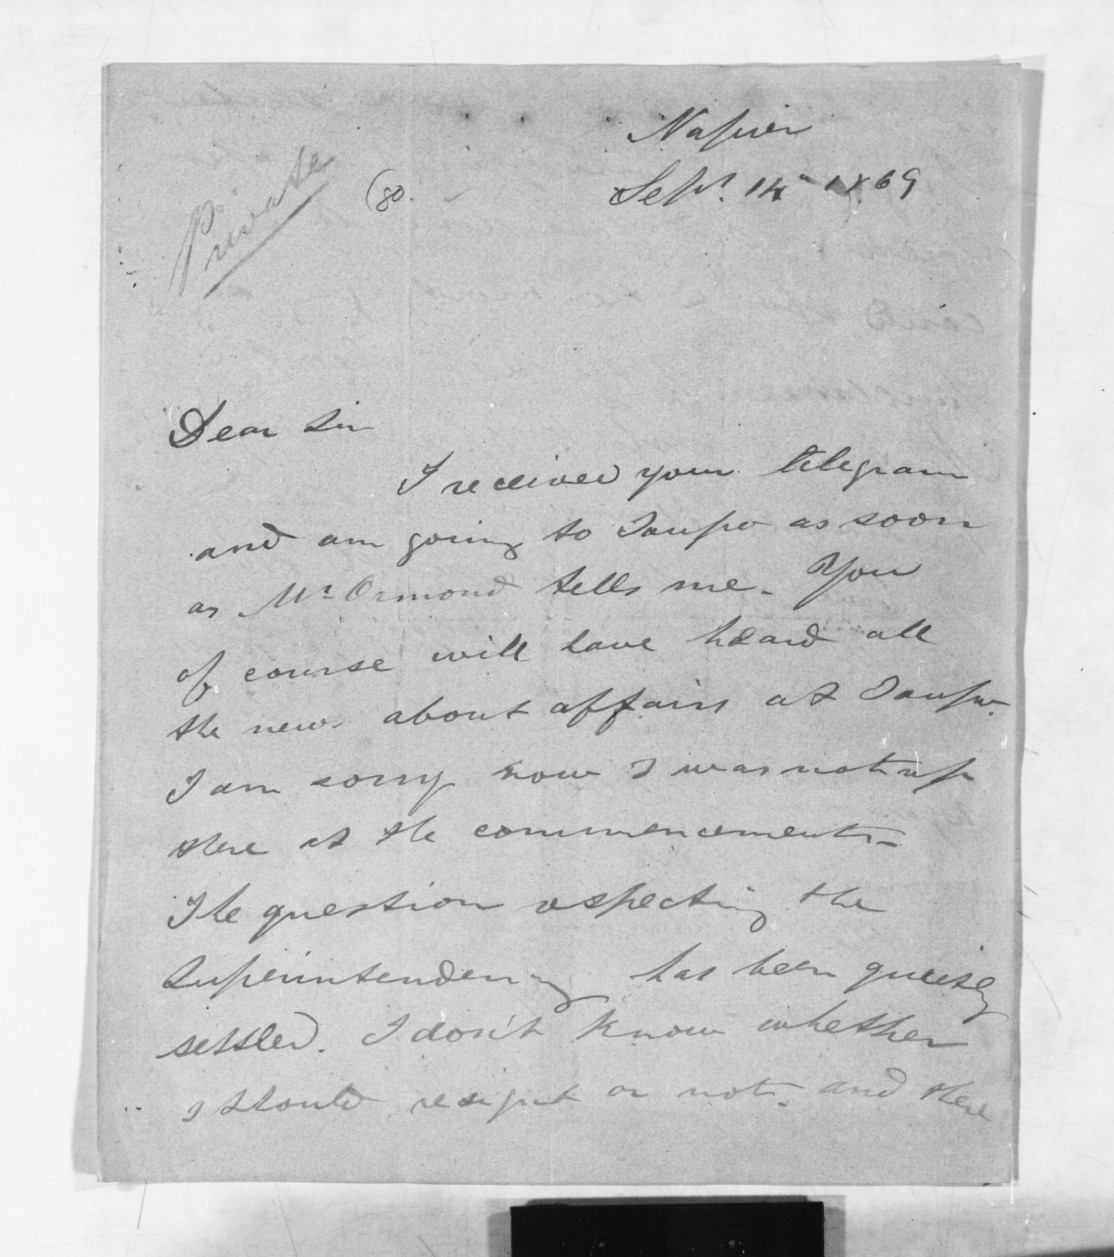 Napier
Sept. 14th 1869
Private
(80.
Dear Sir
I received your telegram
and am going to Taupo as soon
as Mr. Ormond tells me. You
of course will have heard all
the news about affairs at Taupo.
I am sorry now I was not up
there at the commencement.
The question respecting the
Superintendency has been quietly
settled. I don't know whether
I should resign it or not. and there